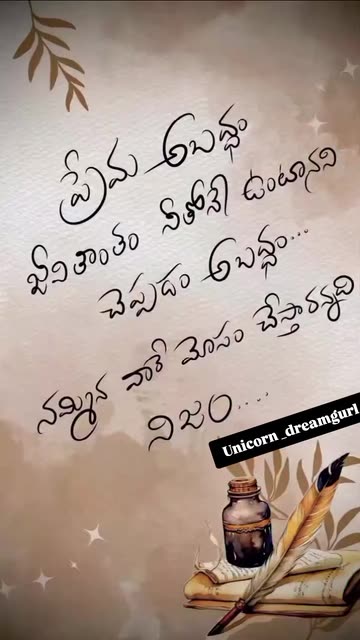 ప్రేమ అబద్ధం
జీవితాంతం నీతోనే ఉంటానని
చెప్పడం అబద్ధం...
నమ్మిన వారే మోసం చేస్తారన్నది
నిజం....
Unicorn_dreamgurl